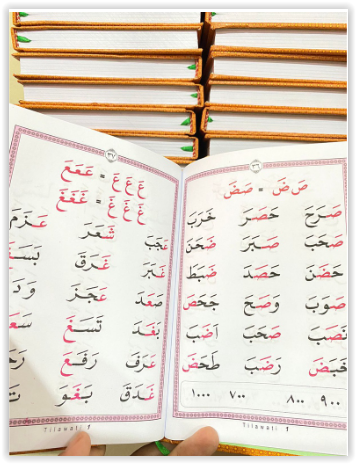 ٣٦
صَ ضَ = صَضَ
صَرَحَ حَصَرَ خَرَبَ
صَحَبَ صَبَرَ ضَحَنَ
حَضَنَ حَصَدَ ضَبَطَ
صَوَبَ وَضَحَ جَحَضَ
نَصَبَ صَحَبَ اَضَبَ
خَبَضَ رَضَبَ طَحَضَ
٩٠٠ ٨٠٠ ٧٠٠ ١٠٠٠
Tilawati 1
٣٧
عَ عَ عَ = عَعَعَ
غَ غَ غَ = غَغَغَ
عَجَبَ شَعَرَ عَزَمَ
غَبَرَ غَرَقَ
صَعَدَ عَجَزَ
بَغَدَ تَسَغَ
عَرَفَ رَفَعَ
غَدَقَ بَغَوَ
Tilawati 1